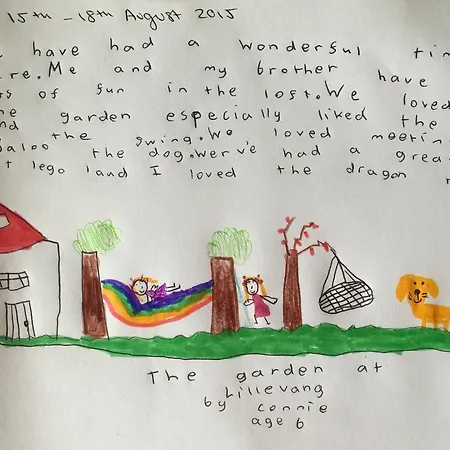 15th - 18th August 2015
have had a wonderful tim
re. Me and my brother have
s of fun in the lost. We loved
garden especially liked the
the swing. We loved meeting
the dog. Werv'e had a grea
t lego land I loved the dragon
The garden at
Lillevang
by connie
age 6